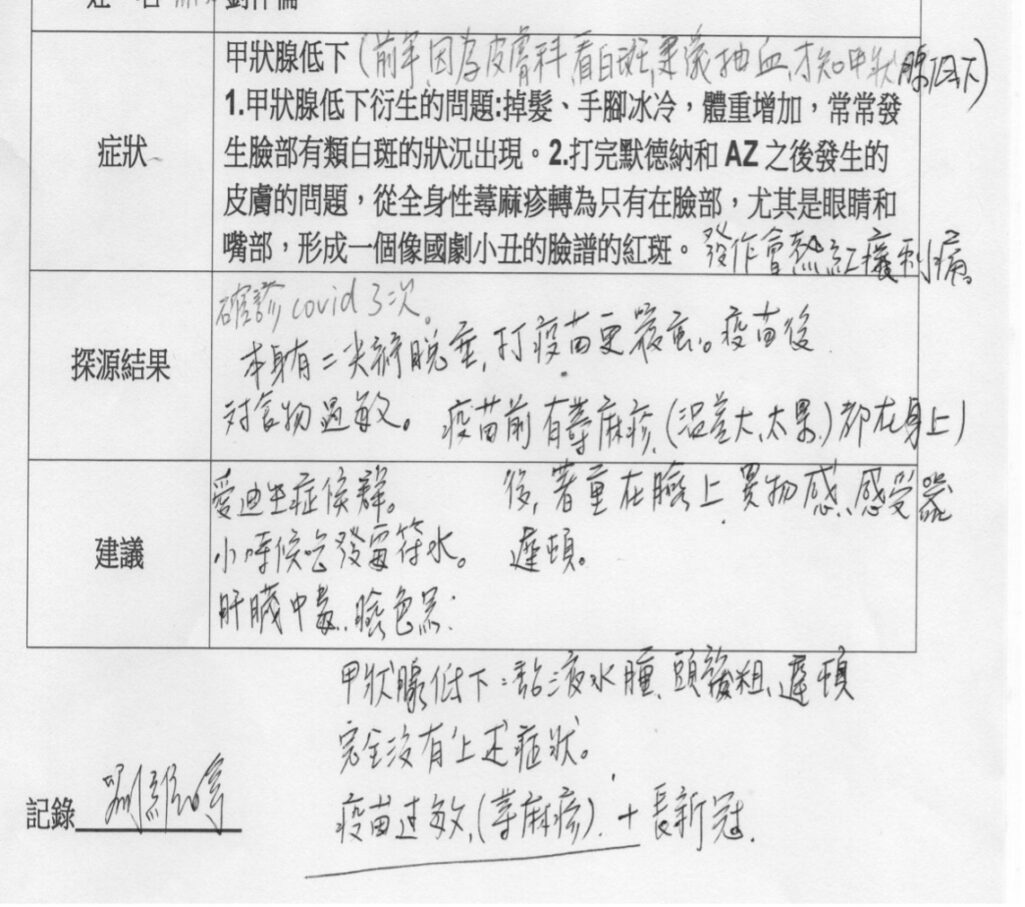 姓 名
甲狀腺低下(前年因為皮膚科看白斑,建議抽血,才知甲狀腺低下)
1.甲狀腺低下衍生的問題:掉髮、手腳冰冷,體重增加,常常發
生臉部有類白斑的狀況出現。2.打完默德納和 AZ 之後發生的
皮膚的問題,從全身性蕁麻疹轉為只有在臉部,尤其是眼睛和
嘴部,形成一個像國劇小丑的臉譜的紅斑。發作會熱紅癢刺痛。
症狀
確診covid 3次。
本身有二尖瓣脫垂,打疫苗更嚴重。疫苗後
對食物過敏。疫苗前有蕁麻疹,(溫差大,太累)都在身上)
探源結果
愛迪生症候群。 後,著重在臉上 異物感,感受器
小時候吃發霉符水。 遲頓。
肝臟中毒,臉色黑:
建議
甲狀腺低下:黏液水腫,頭髮粗,遲頓
完全沒有上述症狀。
疫苗过敏,(蕁麻疹)、+長新冠.
記錄